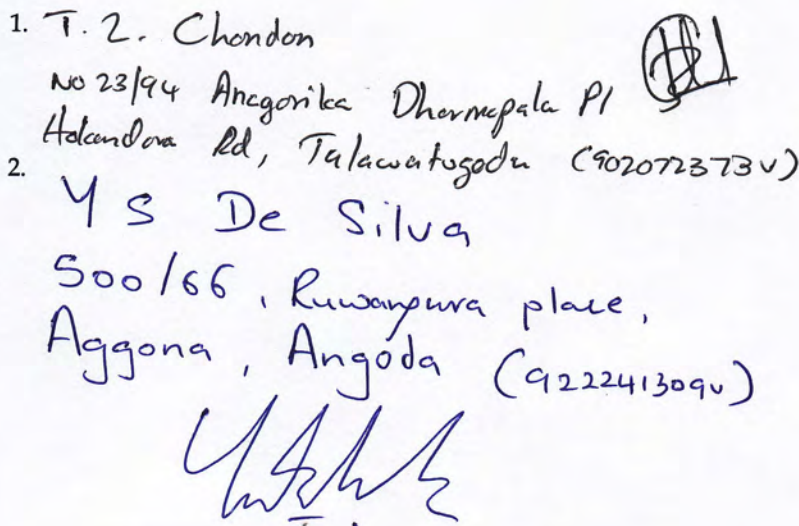 1. T. Z. Chondon
No 23/94 Anagorika Dharmapala Pl
Hokandora Rd, Talawatugoda (902072373V)
2.
Y S De Silva
500/66, Ruwanpura place,
Aggona, Angoda (922241309v)